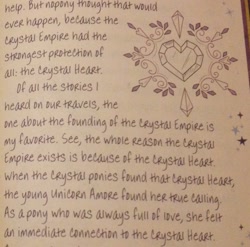 help. But nopony thought that would
ever happen, because the
Crystal Empire had the
strongest protection of
all: the Crystal Heart.
Of all the stories I
heard on our travels, the
one about the founding of the Crystal Empire is
my favorite. See, the whole reason the Crystal
Empire exists is because of the Crystal Heart.
When the Crystal ponies found that Crystal Heart,
the young Unicorn Amore found her true calling.
As a pony who was always full of love, she felt
an immediate connection to the Crystal Heart.